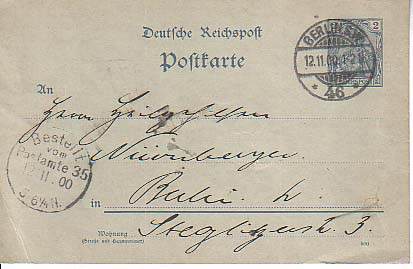 Deutsche Reichspost
Postkarte
2
BERLIN S.W.
12.11.00.
* 46 *
An
Herrn
Nürnberger.
Bestellt
vom
Postamte 35
12.11.00
in Berlin W.
Steglitzerstr. 3.
Wohnung
(Straße und Hausnummer)